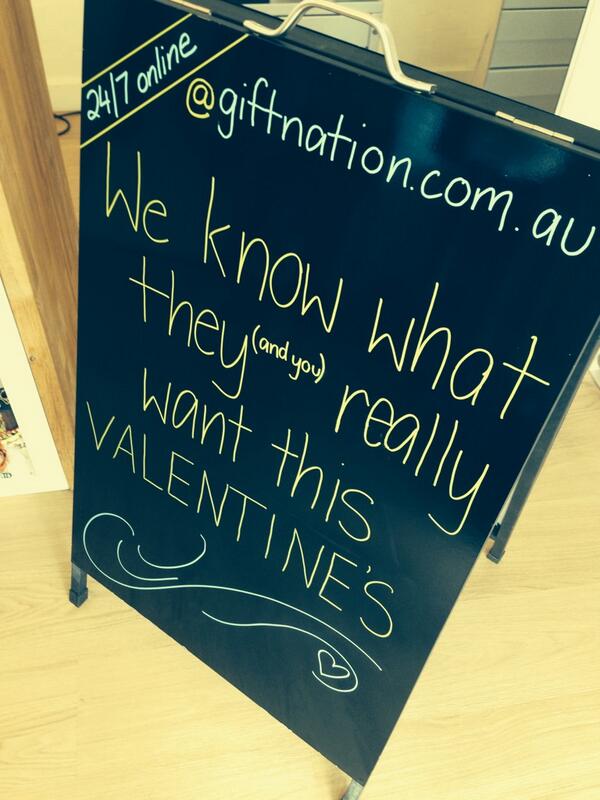 24/7 online
@giftnation.com.au
We know what
they (and you) really
want this
VALENTINE'S